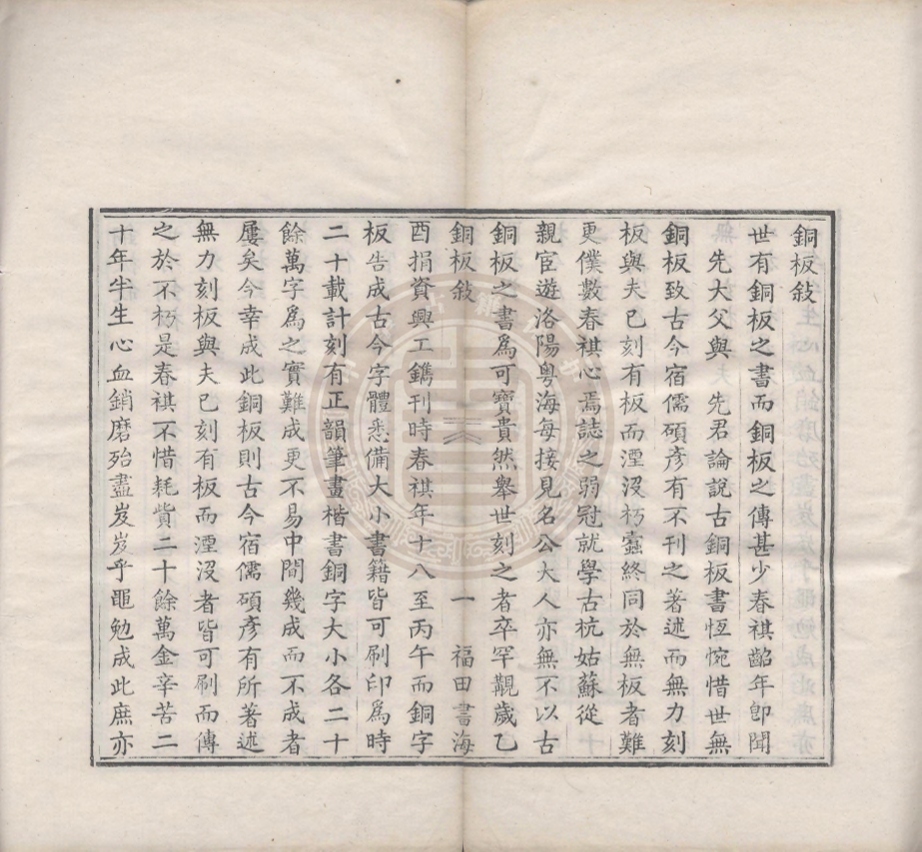 銅板敍
世有銅板之書而銅板之傳甚少春祺齠年卽聞
先大父與　先君論說古銅板書恆惋惜世無
銅板致古今宿儒碩彥有不刊之著述而無力刻
板與夫已刻有板而湮沒朽蠹終同於無板者難
更僕數春祺心焉誌之弱冠就學古杭姑蘇從
親宦遊洛陽粵海每接見名公大人亦無不以古
銅板之書爲可寶貴然舉世刻之者卒罕覯歲乙
銅板敍　一　福田書海
酉捐資興工鐫刊時春祺年十八至丙午而銅字
板告成古今字體悉備大小書籍皆可刷印爲時
二十載計刻有正韻筆畫楷書銅字大小各二十
餘萬字爲之實難成更不易中間幾成而不成者
屢矣今幸成此銅板則古今宿儒碩彥有所著述
無力刻板與夫已刻有板而湮沒者皆可刷而傳
之於不朽是春祺不惜耗貲二十餘萬金辛苦二
十年半生心血銷磨殆盡岌岌乎黽勉成此庶亦